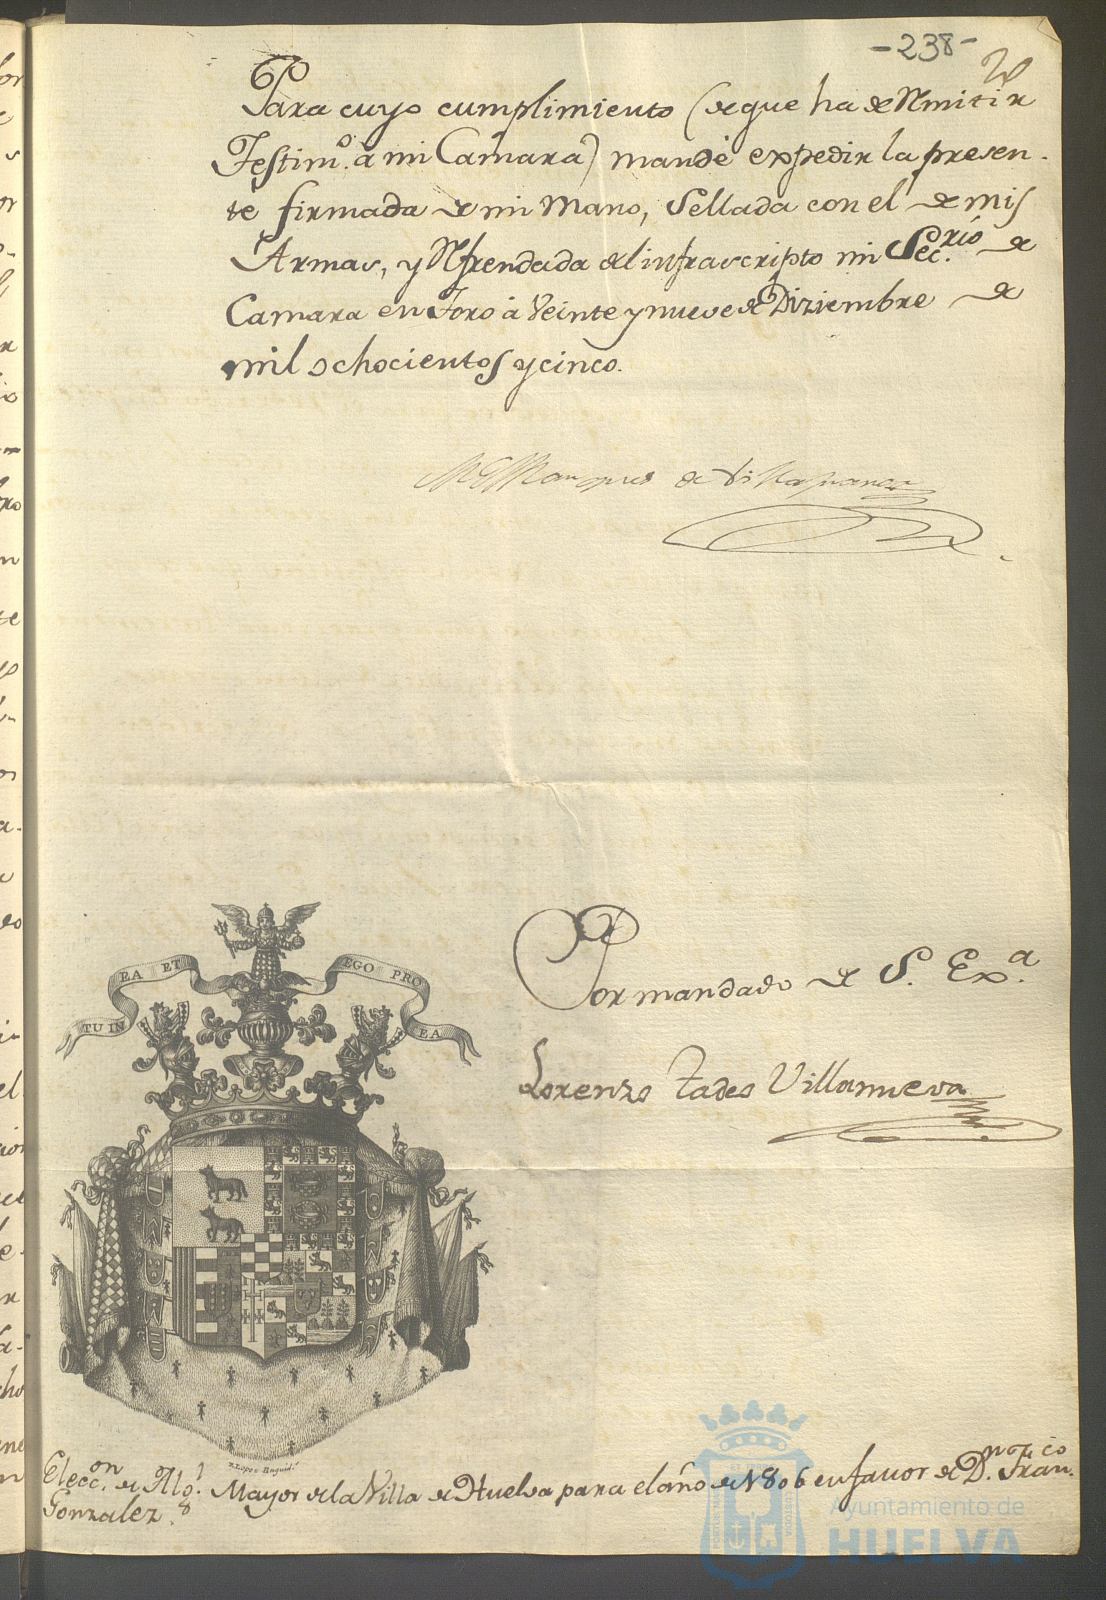 -238-
Para cuyo cumplimiento (de que ha de Rmitir
Testim.o à mi Camara) mandè expedir la presen-
te firmada de mi Mano, Sellada con el de mis
Armas, y Rfrendada del infrascripto mi Sec.rio de
Camara en Toro à Veinte y nueve de Diziembre de
mil ochocientos y cinco.
Marques de Villafranca
Por mandado de S. Ex.a
Lorenzo Tadeo Villanueva
TU IN EA ET EGO PRO EA
Elecc.on de Alg.l Mayor de la Villa de Huelva para el año de 1806 en favor de D.n Fran.co
Gonzalez.
Ayuntamiento de
HUELVA